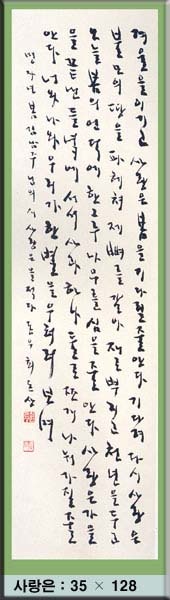 겨울을 이기고 사랑은 봄을 기다릴 줄 안다 기다려 다시 사랑은
불모의 땅을 파헤쳐 제 뼈를 갈아 재로 뿌리고 천년을 두고
오늘 봄의 언덕에 한 그루 나무를 심을 줄 안다 사랑은 가을
을 끝낸 들녘에 서서 사과 하나 둘로 쪼개 나눠 가질 줄
안다 너와 나와 우리가 한 별을 우러러 보며
봄 김남주 님의 시 사랑은을 적다
사랑은 : 35 × 128